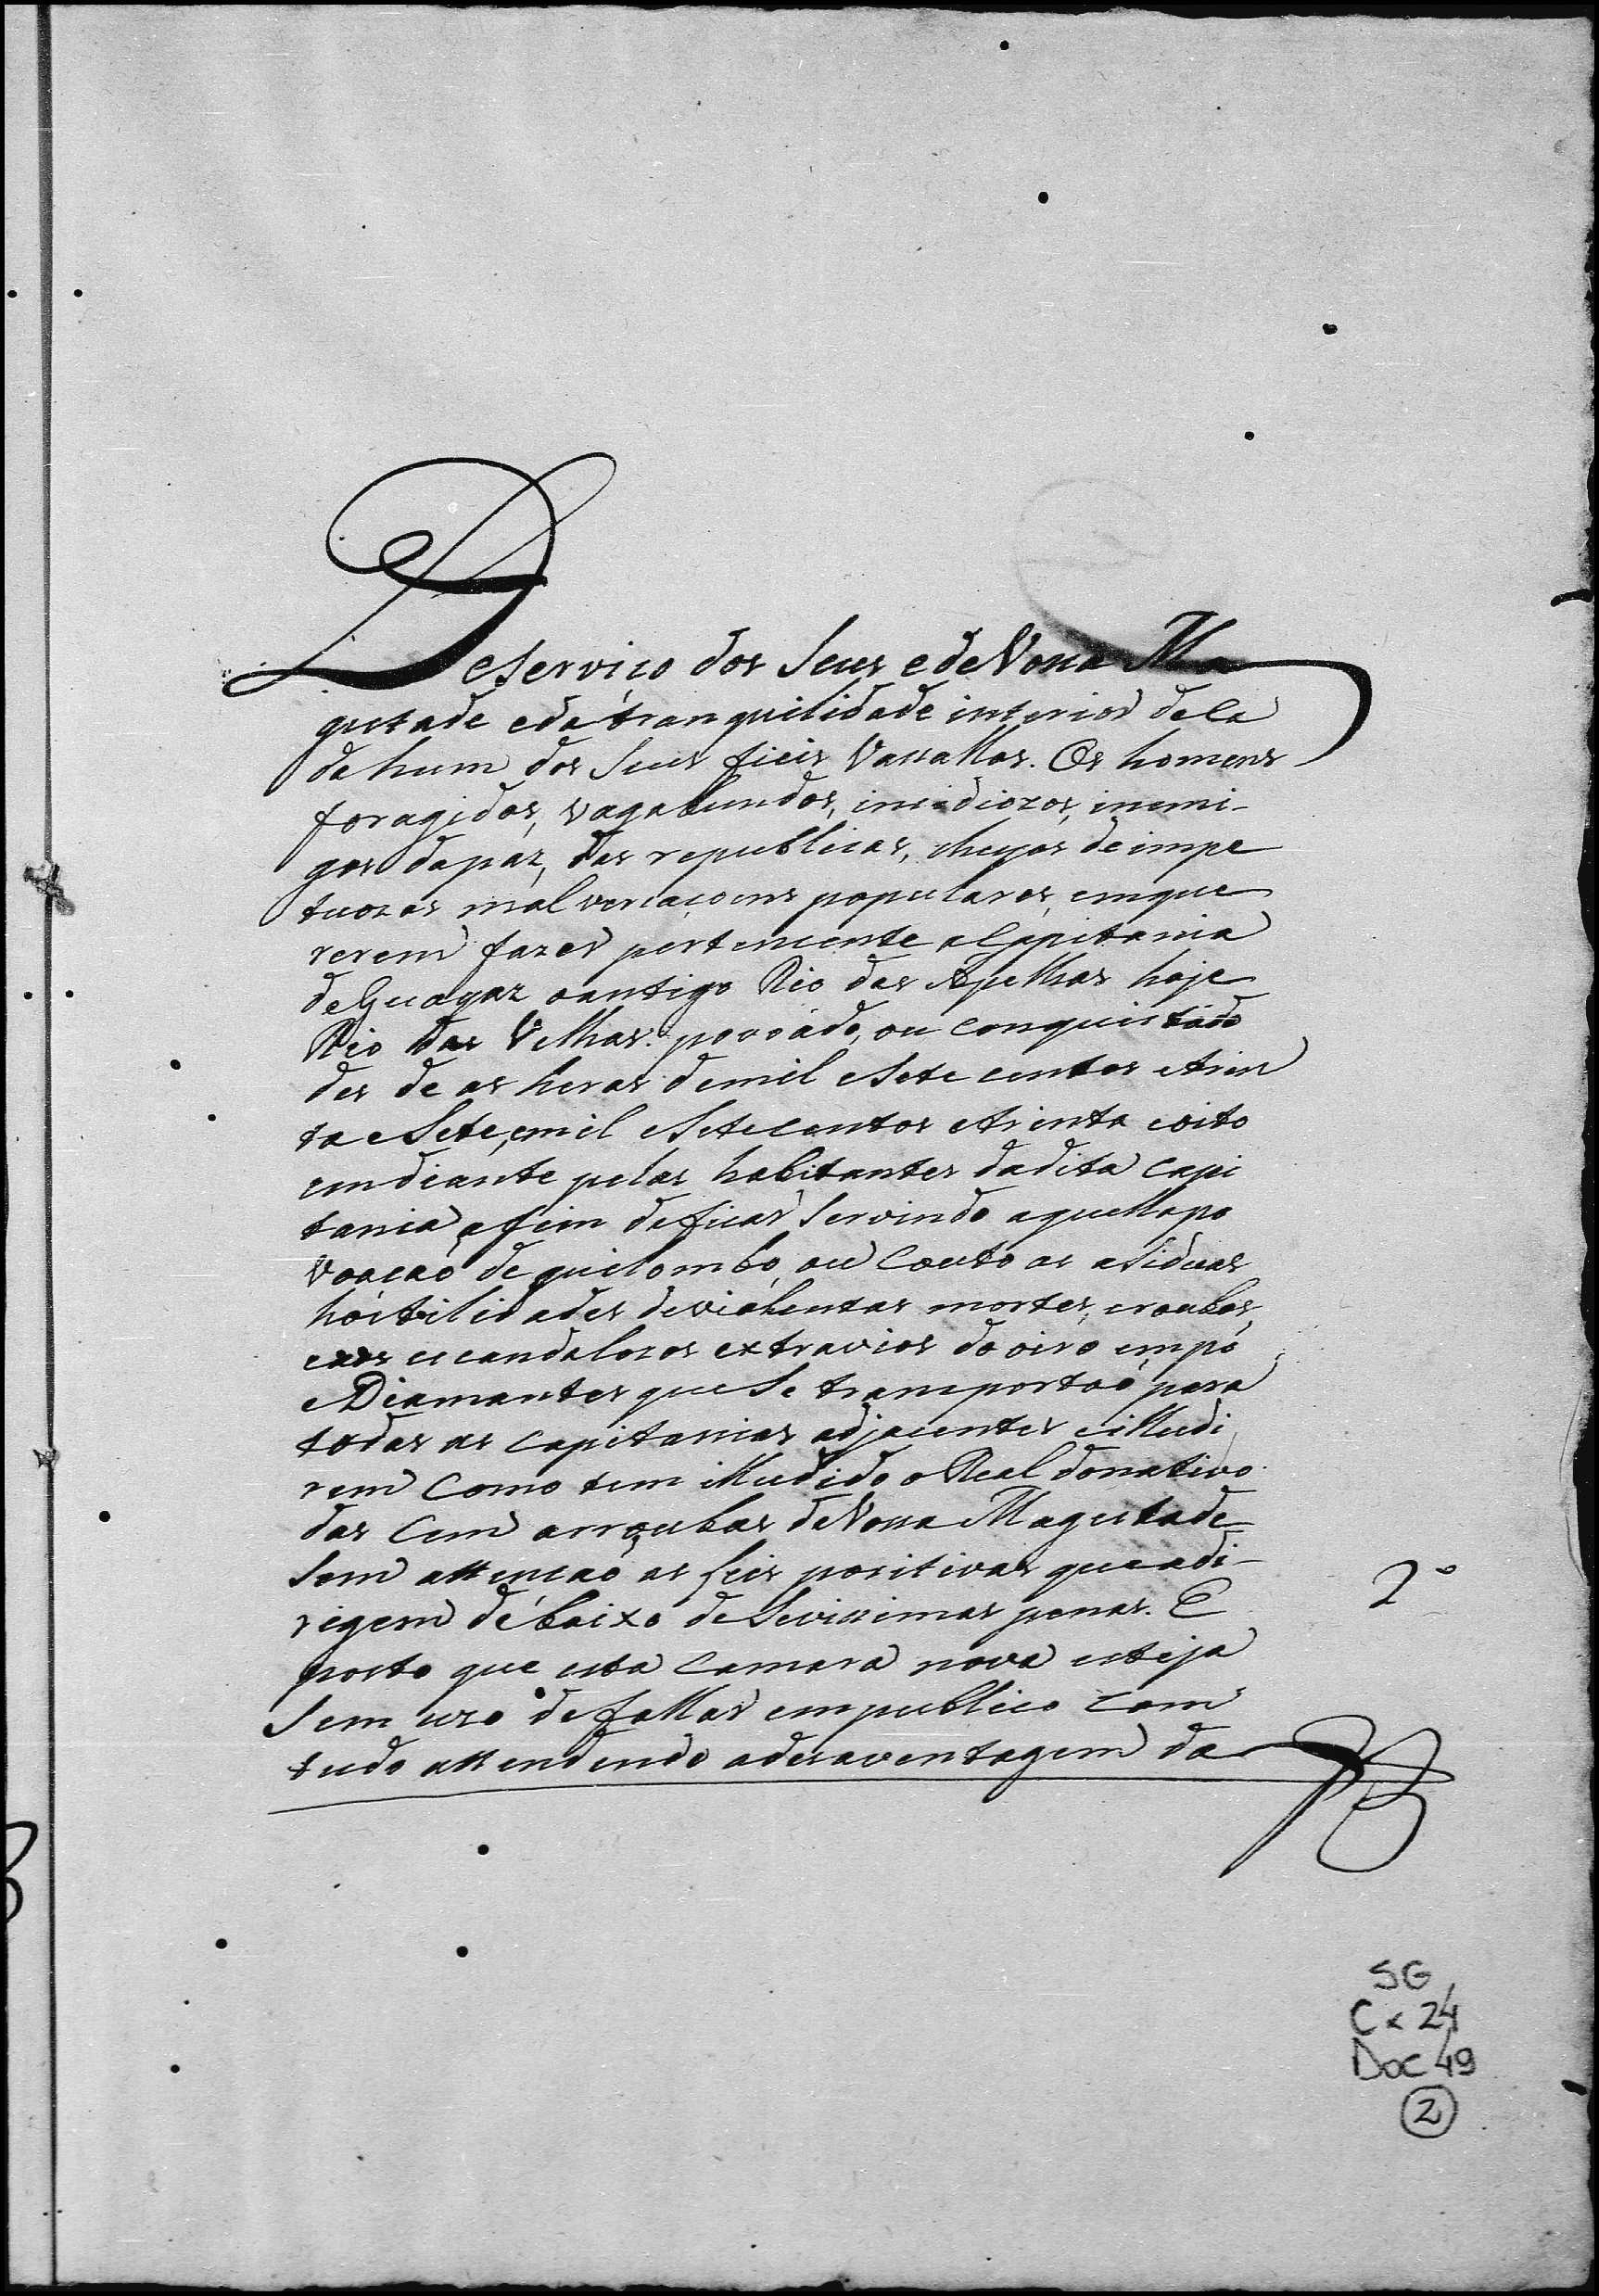 Deserviço dos Seus e de Vossa Ma
gestade eda tranquilidade interior de ca
da hum dos Seus fieis Vassallos. Os homens
foragidos, vagabundos, insidiozos, inemi-
gos dapaz, das republicas, cheyos de impe
tuozas malversaçoens populares, emque
rerem fazer pertencente a Capitania
de Guayaz oantigo Rio das Abelhas hoje
Rio das Velhas: povoádo, ou conquistado
des de as heras demil eSete centos etrin
ta eSete, emil eSetecentos etrinta eoito
emdiante pelos habitantes dadita Capi
tania, afim deficar Servindo aquella po
voaçaõ de quilombo, ou Couto as asiduas
hostilidades deviolentas mortes, eroubos,
eaos escandalozos extravios do oiro empó
eDiamantes que Se transportaõ para
todas as Capitanias adjacentes eilludi
rem Como tem illudido o Real donativo
das Cem arroubas deVossa Magestade
Sem attençaõ as Leis positivas que adi-
rigem débaixo de Sevissimas penas. E
posto que esta Camara nova esteja
Sem uzo defallar empublico Com
tudo attendendo adesaventagem da
2º
SG
Cx 24
Doc 49
2